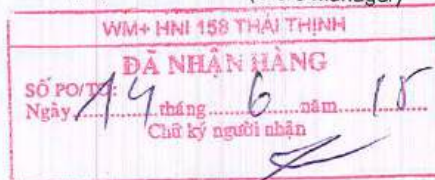 WM+ HNI 158 THÁI THỊNH
ĐÃ NHẬN HÀNG
SỐ PO/TO:
Ngày 14 tháng 6 năm 15
Chữ ký người nhận